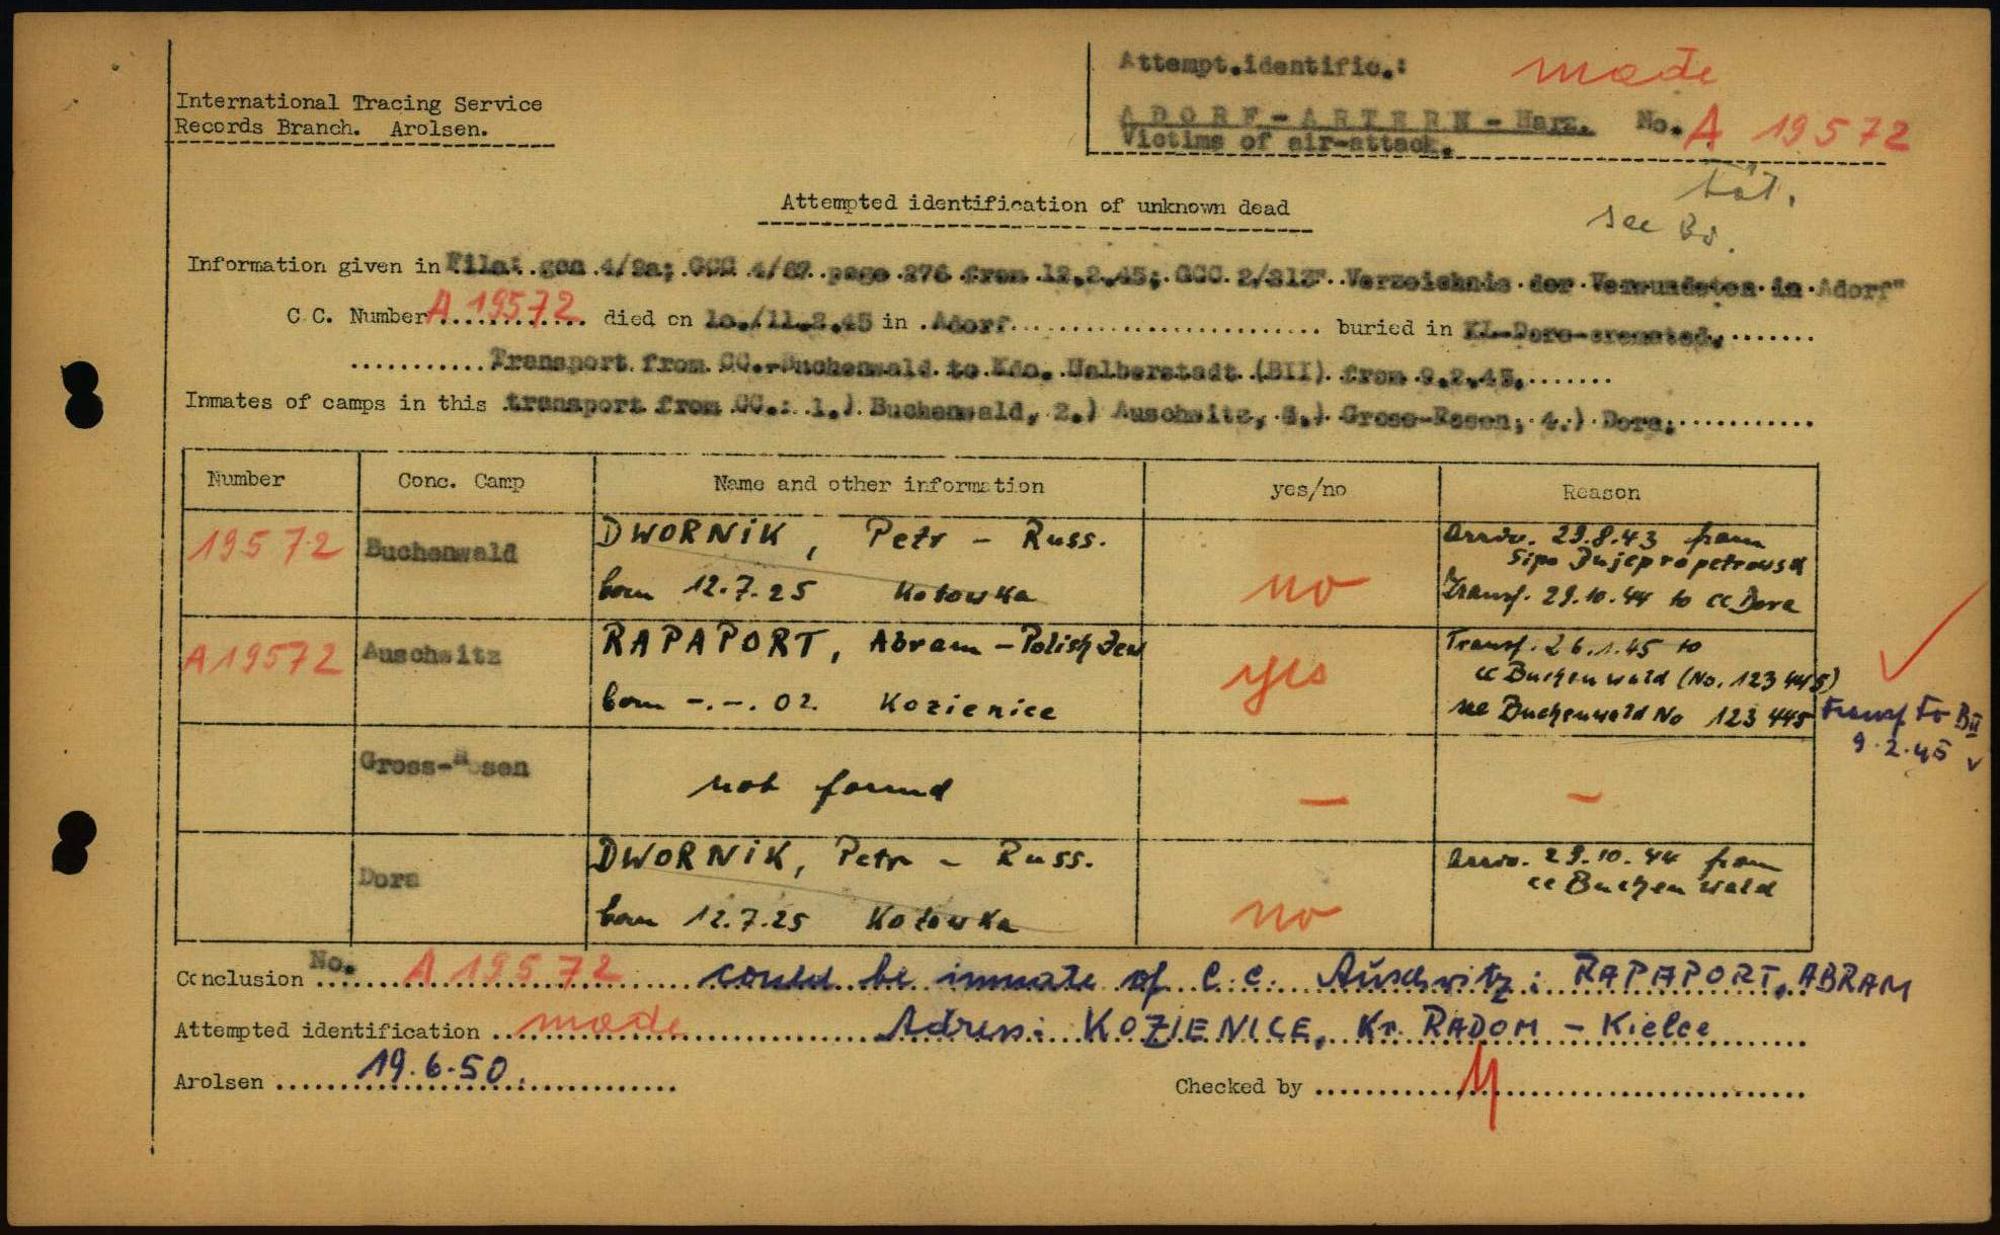 International Tracing Service
Records Branch. Arolsen.
Attempt.identific.: made
ADORF-ARTERN-Harz. No. A 19572
Victims of air-attack.
see
Attempted identification of unknown dead
Information given in gcn 4/2a; GCC 4/67 page 276 from 12.2.45; GCC 2/ Verzeichnis der Verwundeten in Adorf"
C.C. Number A 19572 died on 10./11.2.45 in Adorf buried in KL-Dora-cremated.
Transport from CC.-Buchenwald to Kdo. Halberstadt (BII) from 9.2.45.
Inmates of camps in this transport from CC.: 1.) Buchenwald, 2.) Auschwitz, 3.) Gross-Rosen, 4.) Dora.
Number Conc. Camp Name and other information yes/no Reason
19572 Buchenwald DWORNIK, Petr - Russ. no Arriv. 29.8.43 from
Sipo Dnjepropetrowsk
born 12.7.25 Kotowka Transf. 29.10.44 to CC Dora
A19572 Auschwitz RAPAPORT, Abram - Polish Jew yes Transf. 26.1.45 to
CC Buchenwald (No. 123 445)
born -.-. 02. Kozienice see Buchenwald No 123 445 transf to BII
9.2.45
Gross-Rosen not found — —
Dora DWORNIK, Petr - Russ. no Arriv. 29.10.44 from
CC Buchenwald
born 12.7.25 Kotowka
Conclusion No. A 19572 could be inmate of C.C. Auschwitz: RAPAPORT, ABRAM
Attempted identification made Adress: KOZIENICE, Kr. RADOM - Kielce
Arolsen 19.6.50. Checked by